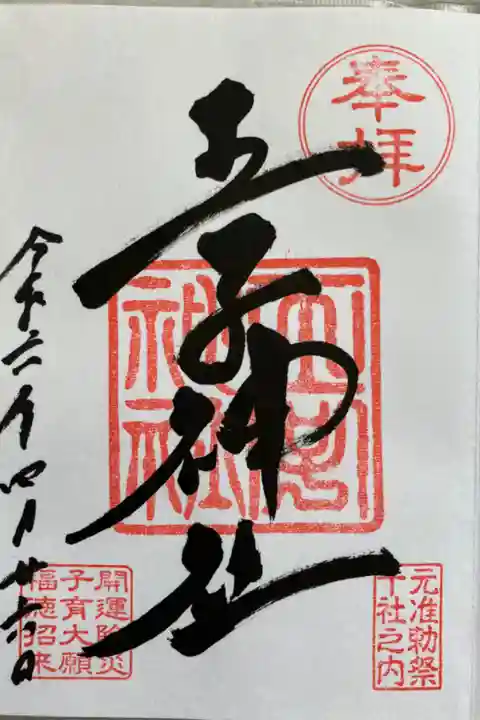 奉拝
王子神社
王子神社
元准勅祭
十社之内
令和六年四月廿六日
開運除災
子育大願
福徳招来